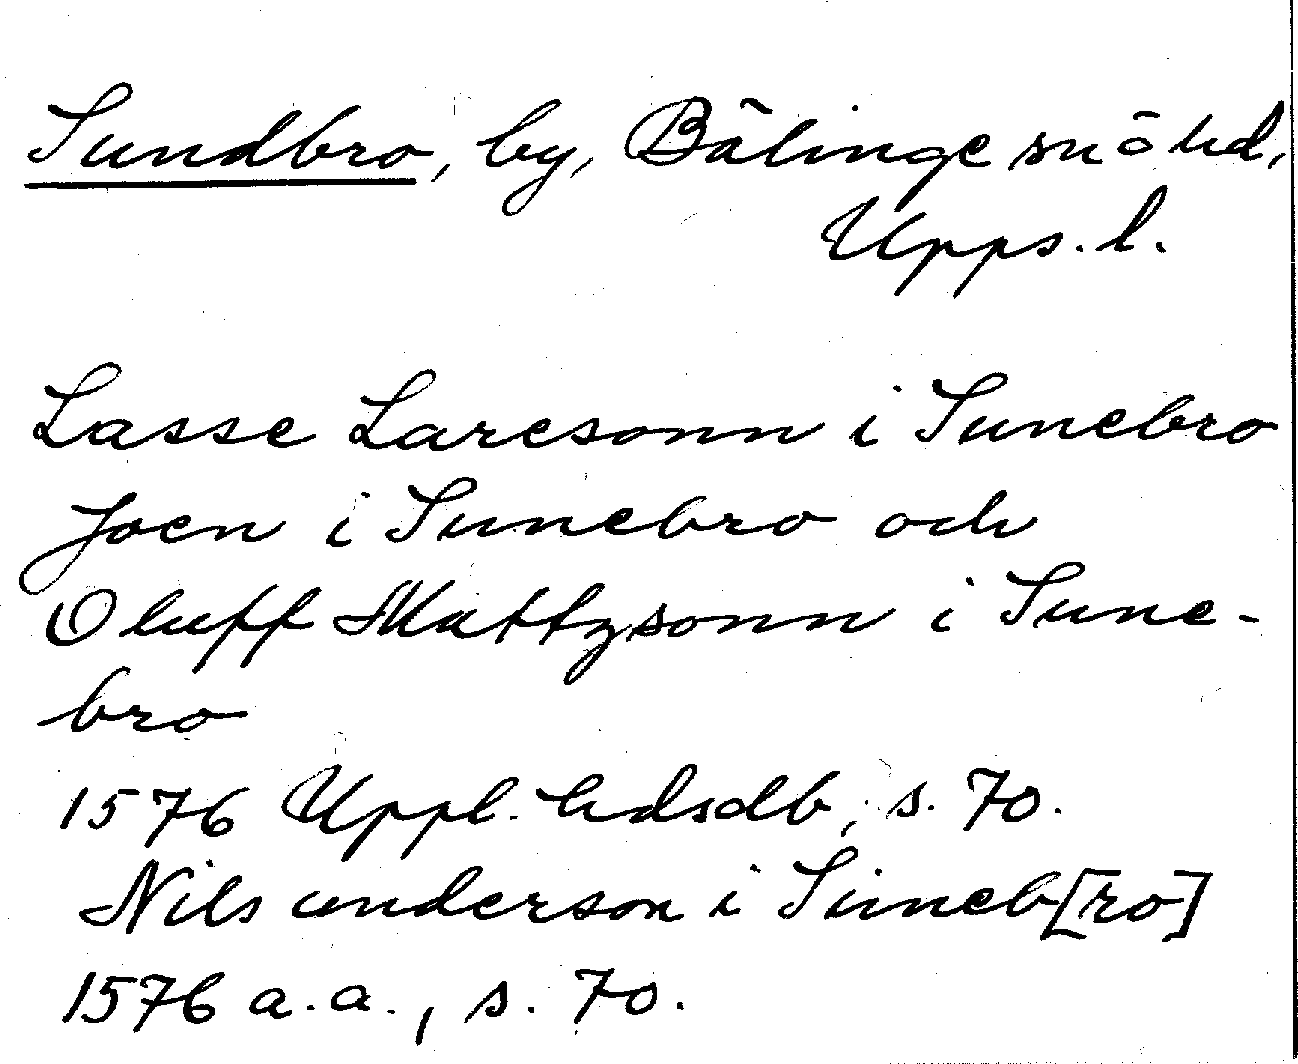 Sundbro, by, Bälinge sn ō hd,
Upps. l.
Lasse Laresonn i Sunebro
Joen i Sunebro och
Oluff Mattzsonn i Sune-
bro
1576 Uppl. hdsdb, s. 70.
Nils anderson i Suneb[ro]
1576 a.a., s. 70.